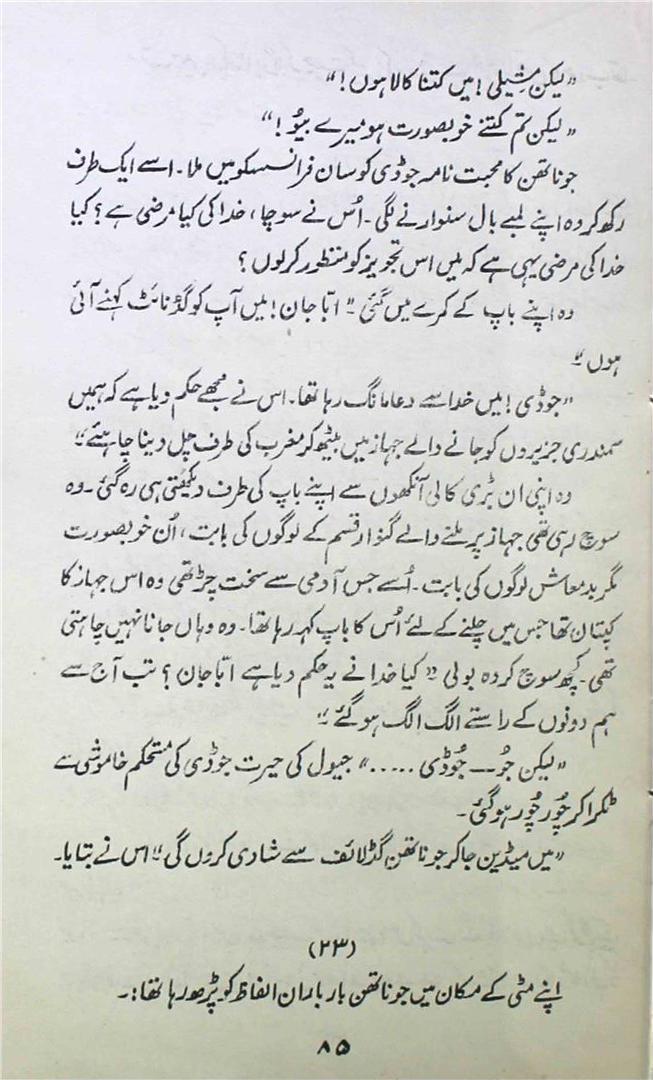 "لیکن مشیلی! میں کتنا کالا ہوں!"
"لیکن تم کتنے خوبصورت ہو میرے بیوُ!"
جوناتھن کا محبت نامہ جوڈی کو سان فرانسسکو میں ملا۔ اسے ایک طرف
رکھ کر وہ اپنے لمبے بال سنوارنے لگی۔ اُس نے سوچا، خدا کی کیا مرضی ہے؟ کیا
خدا کی مرضی یہی ہے کہ میں اس تجویز کو منظور کر لوں؟
وہ اپنے باپ کے کمرے میں گئی "ابّا جان! میں آپ کو گڈ نائٹ کہنے آئی
ہوں"
"جوڈی! میں خدا سے دعا مانگ رہا تھا۔ اس نے مجھے حکم دیا ہے کہ ہمیں
سمندری جزیروں کو جانے والے جہاز میں بیٹھ کر مغرب کی طرف چل دینا چاہیئے"
وہ اپنی ان بڑی کالی آنکھوں سے اپنے باپ کی طرف دیکھتی ہی رہ گئی۔ وہ
سوچ رہی تھی جہاز پر ملنے والے گنوار قسم کے لوگوں کی بابت، اُن خوبصورت
مگر بدمعاش لوگوں کی بابت۔ اُسے جس آدمی سے سخت چڑ تھی وہ اس جہاز کا
کپتان تھا جس میں چلنے کے لئے اُس کا باپ کہہ رہا تھا۔ وہ وہاں جانا نہیں چاہتی
تھی۔ کچھ سوچ کر وہ بولی "کیا خدا نے یہ حکم دیا ہے ابّا جان؟ تب آج سے
ہم دونوں کے راستے الگ الگ ہو گئے"
"لیکن جُو — جُوڈی ....." جیول کی حیرت جوڈی کی مستحکم خاموشی سے
ٹکرا کر چُور چُور ہو گئی۔
"میں میڈین جا کر جوناتھن گڈلائف سے شادی کروں گی" اس نے بتایا۔
(۲۳)
اپنے مٹی کے مکان میں جوناتھن بار بار ان الفاظ کو پڑھ رہا تھا:۔
۸۵